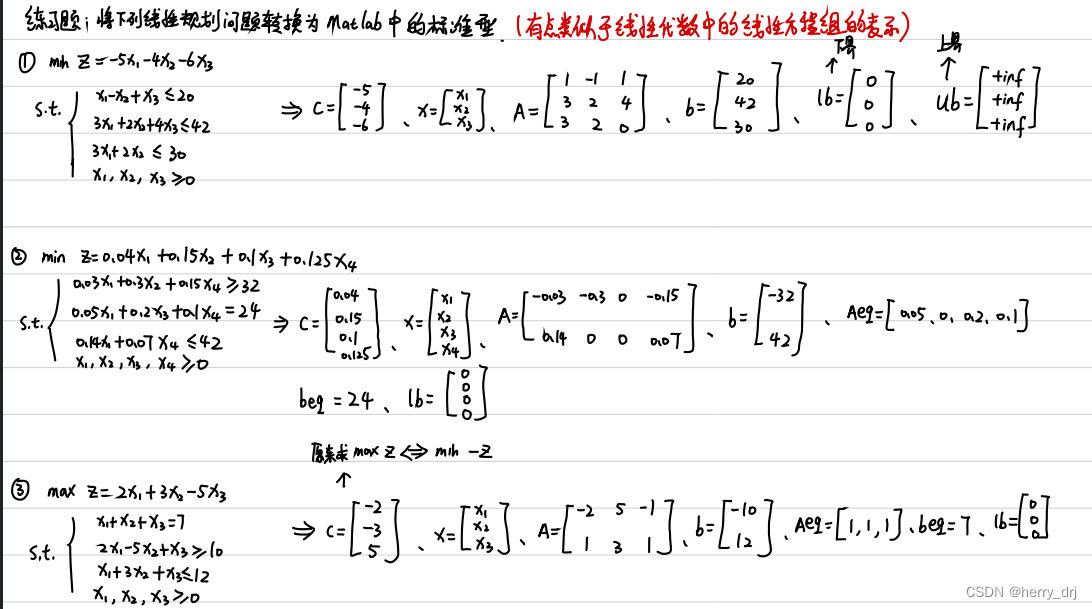 练习题：将下列线性规划问题转换为 Matlab 中的标准型．(有点类似于线性代数中的线性方程组的表示)
下界 上界
① min Z=-5x₁-4x₂-6x₃
s.t. { x₁-x₂+x₃≤20
3x₁+2x₂+4x₃≤42
3x₁+2x₂≤30
x₁, x₂, x₃≥0
⇒ C=[-5; -4; -6]、x=[x₁; x₂; x₃]、A=[1 -1 1; 3 2 4; 3 2 0]、b=[20; 42; 30]、lb=[0; 0; 0]、ub=[+inf; +inf; +inf]
② min Z=0.04x₁+0.15x₂+0.1x₃+0.125x₄
s.t. { 0.03x₁+0.3x₂+0.15x₄≥32
0.05x₁+0.2x₃+0.1x₄=24
0.14x₁+0.07x₄≤42
x₁, x₂, x₃, x₄≥0
⇒ C=[0.04; 0.15; 0.1; 0.125]、x=[x₁; x₂; x₃; x₄]、A=[-0.03 -0.3 0 -0.15; 0.14 0 0 0.07]、b=[-32; 42]、Aeq=[0.05、0、0.2、0.1]
beq=24、lb=[0; 0; 0; 0]
原来求 max Z ⇔ min -Z
③ max Z=2x₁+3x₂-5x₃
s.t. { x₁+x₂+x₃=7
2x₁-5x₂+x₃≥10
x₁+3x₂+x₃≤12
x₁, x₂, x₃≥0
⇒ C=[-2; -3; 5]、x=[x₁; x₂; x₃]、A=[-2 5 -1; 1 3 1]、b=[-10; 12]、Aeq=[1,1,1]、beq=7、lb=[0; 0; 0]
CSDN @herry_drj